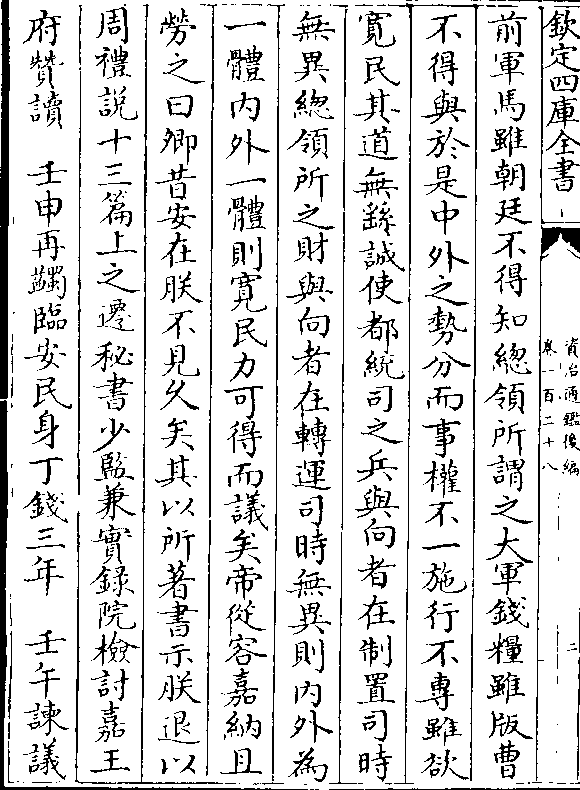 欽定四庫全書
資治通鑑後編
卷一百二十八
二
前軍馬雖朝廷不得知總領所謂之大軍錢糧雖版曹
不得與於是中外之勢分而事權不一施行不專雖欲
寛民其道無繇誠使都統司之兵與向者在制置司時
無異總領所之財與向者在轉運司時無異則内外為
一體内外一體則寛民力可得而議矣帝從容嘉納且
勞之曰卿昔安在朕不見乆矣其以所著書示朕退以
周禮説十三篇上之遷秘書少監兼實録院檢討嘉王
府贊讀　壬申再蠲臨安民身丁錢三年　壬午諫議